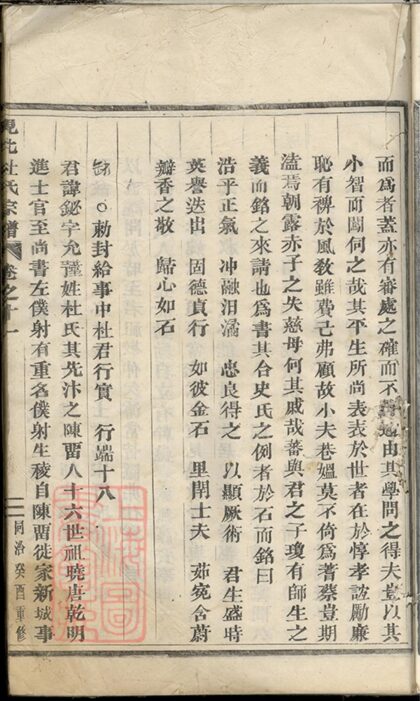 而爲者蓋亦有審處之確而不
由其學問之得夫豈以其
小智而鬭伺之哉其平生所尚表表於世者在於惇孝誼勵廉
恥有裨於風敎雖費己弗顧故小夫巷嫗莫不倚爲蓍蔡豈期
溘焉朝露赤子之失慈母何其戚哉蕃與君之子瓊有師生之
義而銘之來請也爲書其合史氏之例者於石而銘曰
浩乎正氣 冲融汨潏 忠良得之 以顯厥術 君生盛時
英譽迭出 固德貞行 如彼金石 里閈士夫 茹㷀含蔚
瓣香之敬 歸心如石
○勅封給事中杜君行實 行端十八
君諱鉍字允謹姓杜氏其先汴之陳畱人十六世祖曉唐乾明
進士官至尚書左僕射有重名僕射生稜自陳畱徙家新城事
杜氏宗譜 卷之十一
同治癸酉重修